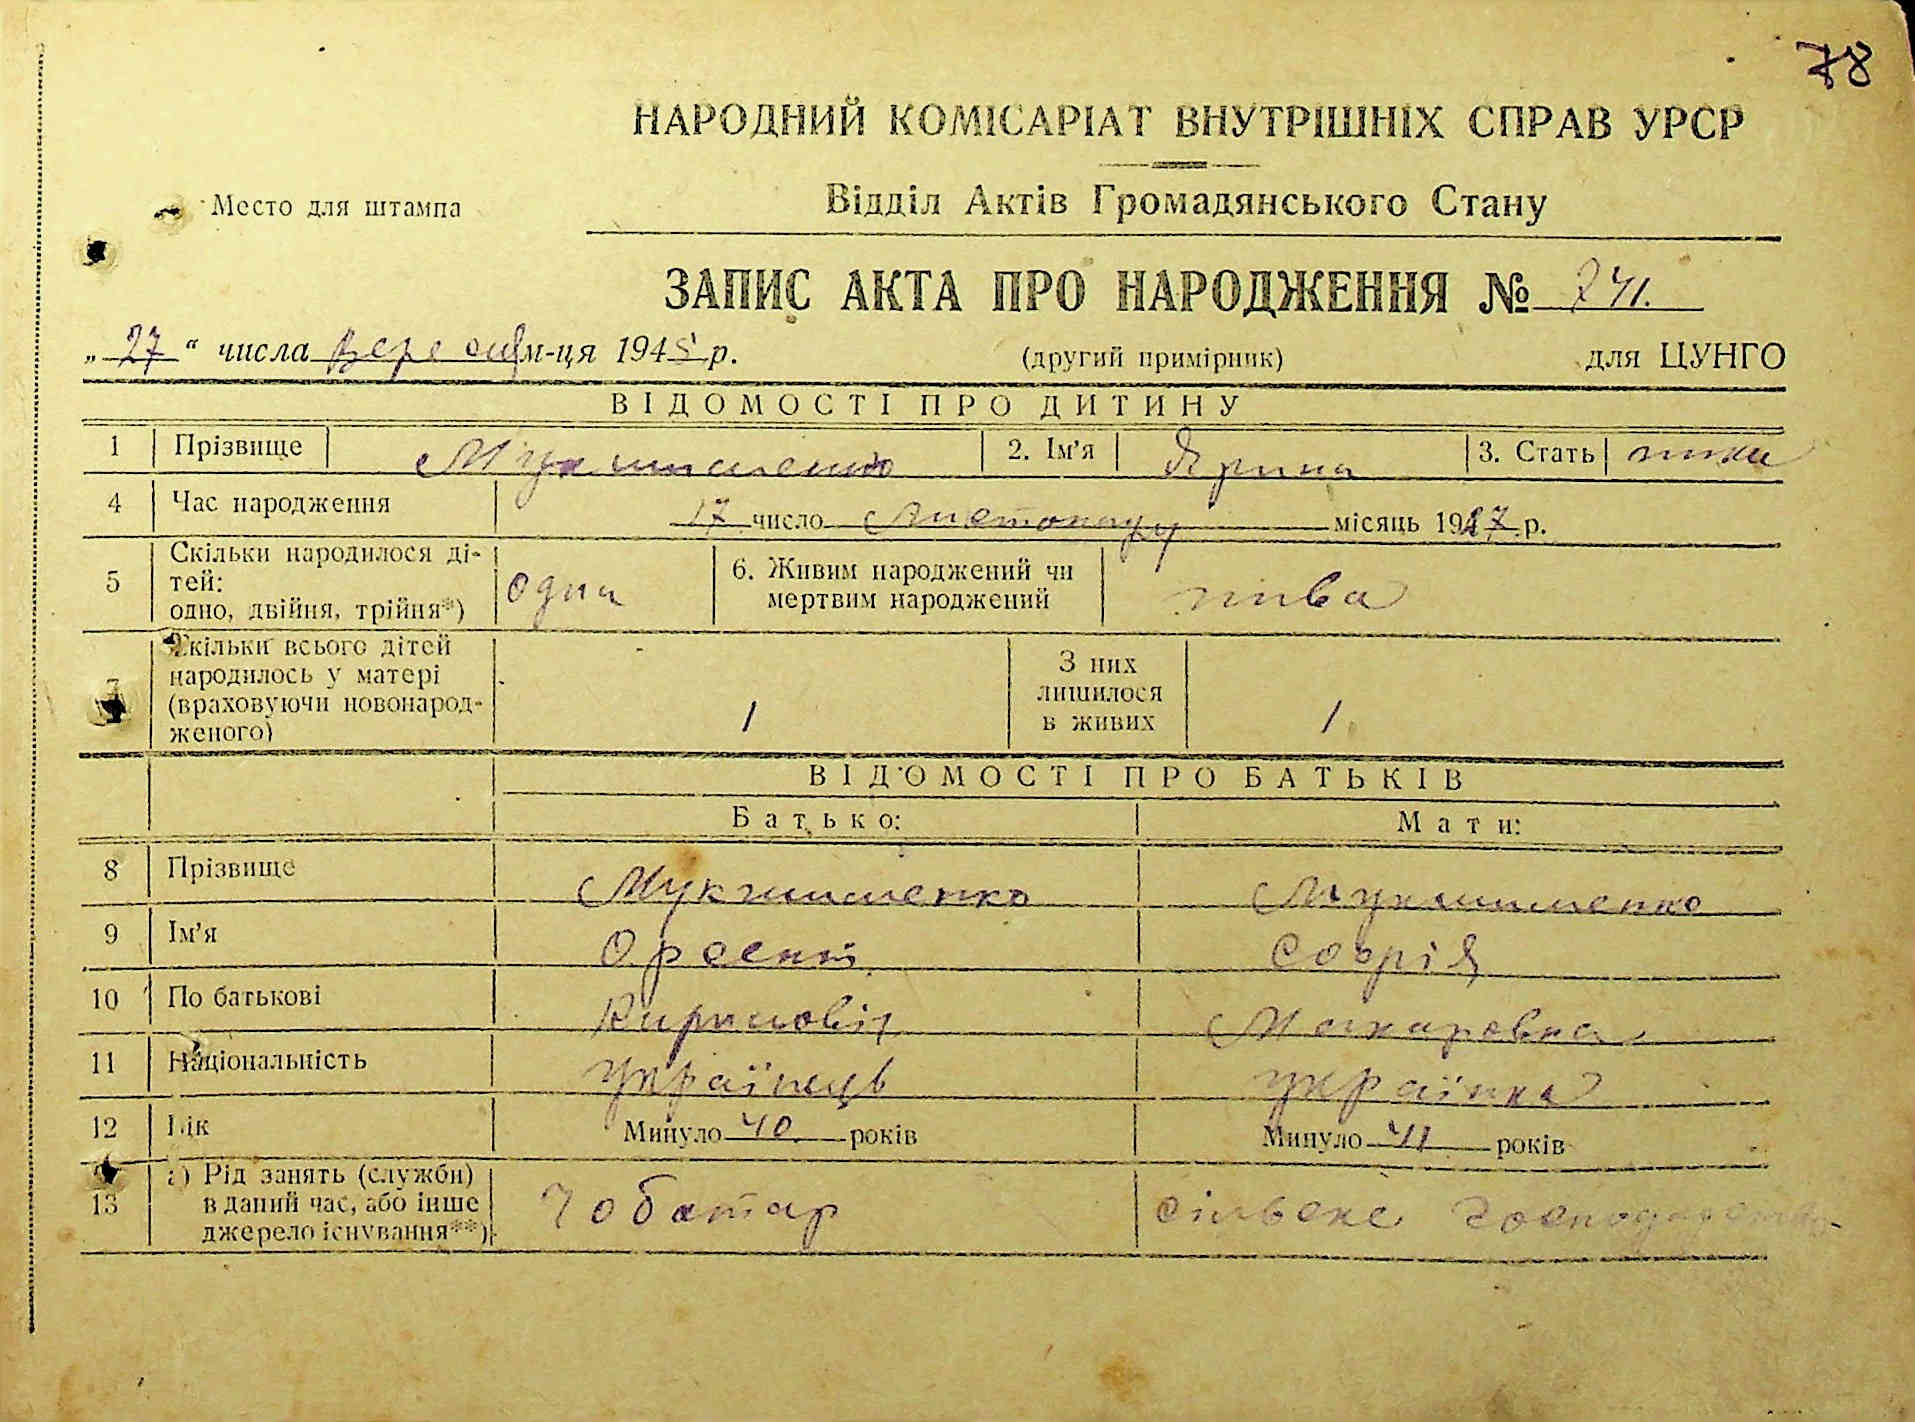 78
НАРОДНИЙ КОМІСАРІАТ ВНУТРІШНІХ СПРАВ УРСР
Место для штампа
Відділ Актів Громадянського Стану
ЗАПИС АКТА ПРО НАРОДЖЕННЯ № 741.
„27“ числа вересня м-ця 1945 р. (другий примірник) для ЦУНГО
ВІДОМОСТІ ПРО ДИТИНУ
1 Прізвище 2. Ім'я Ярина 3. Стать
4 Час народження 17 число листопаду місяць 1927 р.
5 Скільки народилося ді-
тей:
одно, двійня, трійня*) одна 6. Живим народжений чи
мертвим народжений жива
7 Скільки всього дітей
народилось у матері
(враховуючи новонарод-
женого) 1 З них
лишилося
в живих 1
ВІДОМОСТІ ПРО БАТЬКІВ
Батько: Мати:
8 Прізвище
9 Ім'я
10 По батькові Макаровна
11 Національність українець українка
12 Вік Минуло 40 років Минуло 41 років
13 а) Рід занять (служби)
в даний час, або інше
джерело існування**) Чобатар сільське господарство